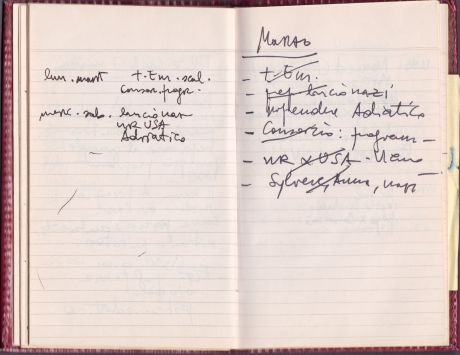 lun. mart t. Em. scal.
Consor. progr.
merc. sab. lancionar
NR USA
Adriatico
MARZO
- t. Em.
- lancionazi
- riprendere Adriatico
- Consorzio: program
- NR x USA -
- Sylvere, Anna,